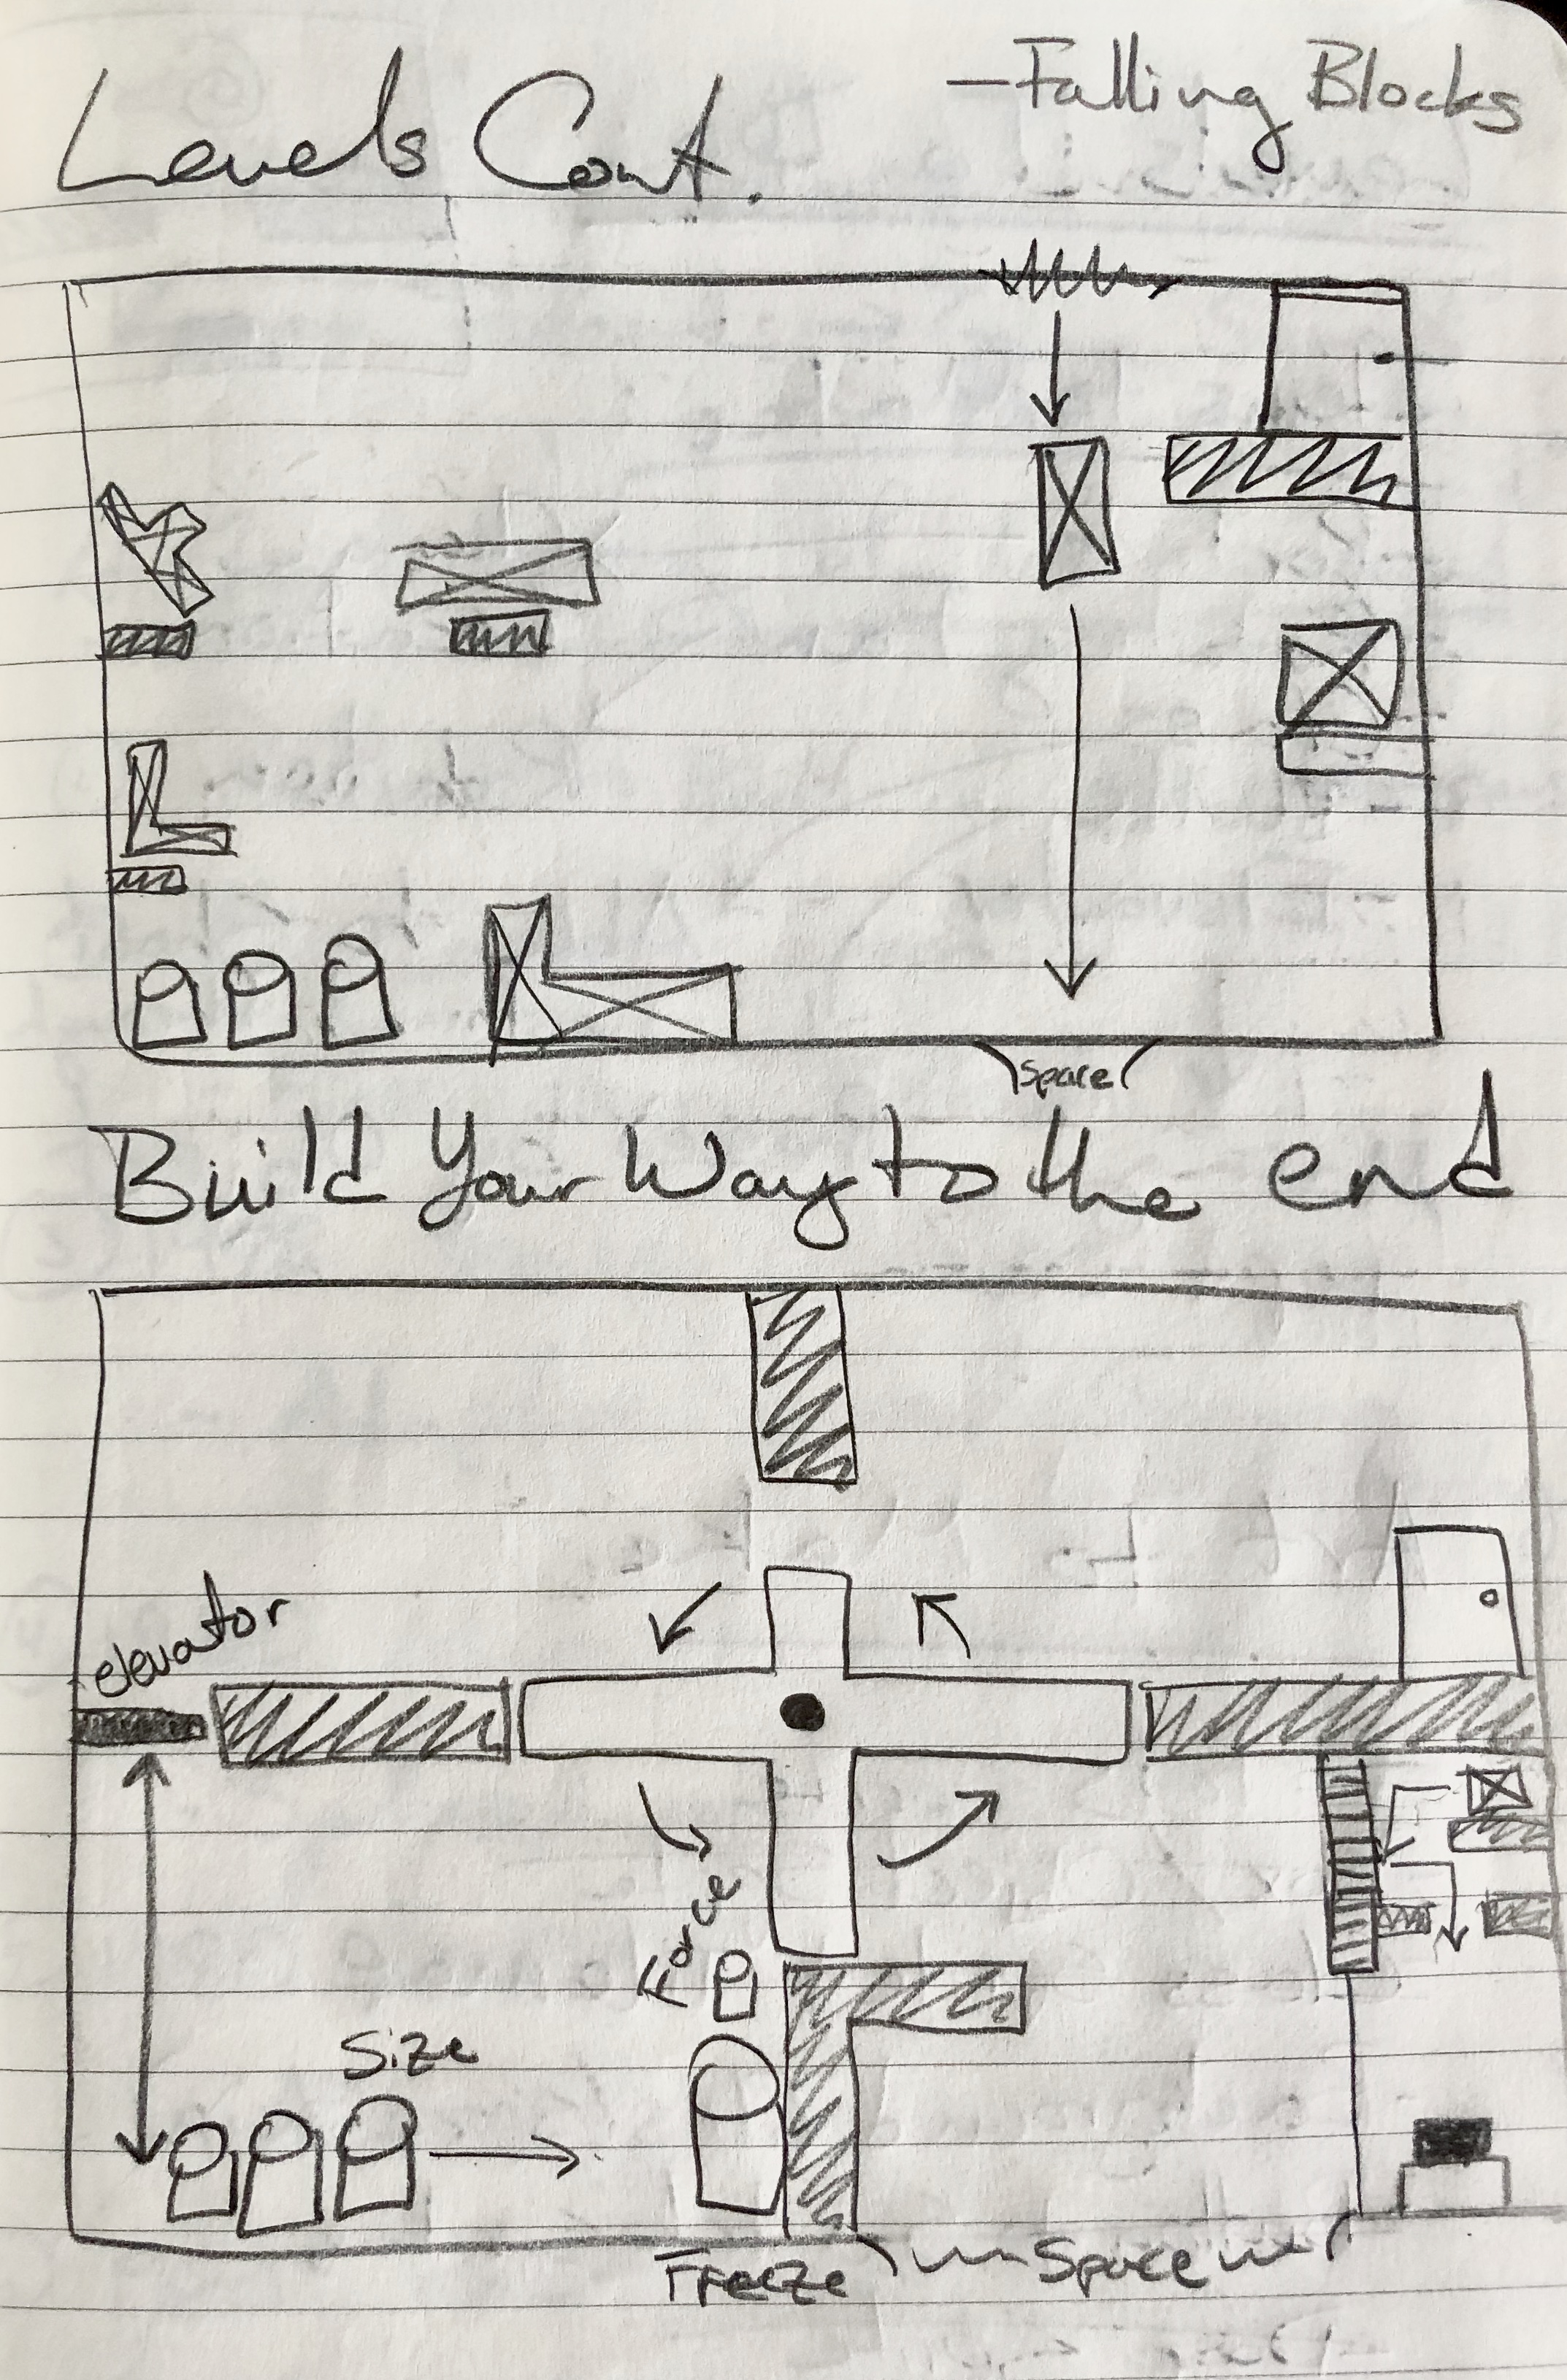 Levels Cont.
-Falling Blocks
Space
Build Your Way to the end
elevator
Force
Size
Freeze
Space